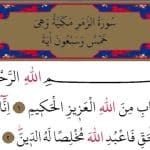 سُورَةُ الزُّمَرِ مَكِّيَّةٌ وَهِيَ
خَمْسٌ وَسَبْعُونَ اٰيَةً
ـمِ اللهِ الرَّحْـ
ـابِ مِنَ اللهِ الْعَزِيزِ الْحَكِيمِ ١ اِنَّا
ـحَقِّ فَاعْبُدِ اللهَ مُخْلِصًا لَهُ الدِّينَ ٢